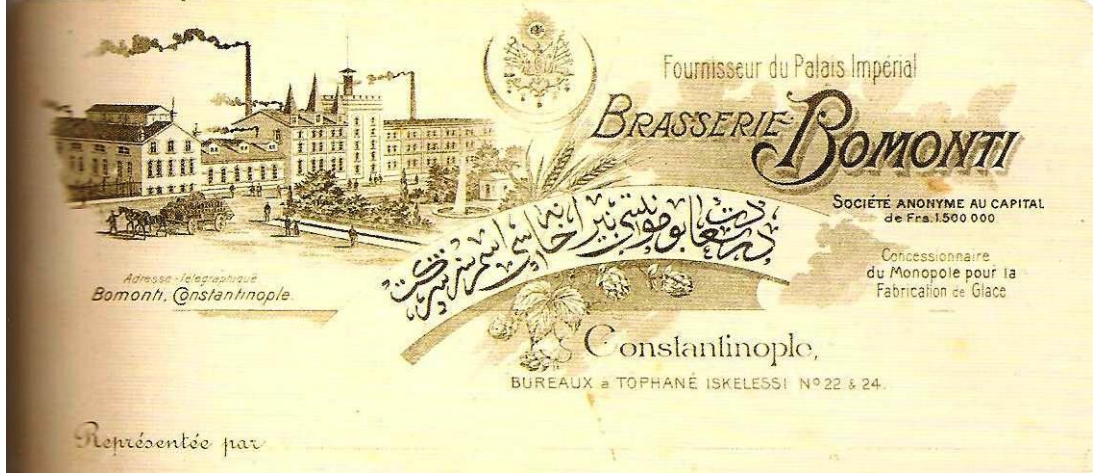 Fournisseur du Palais Impérial
BRASSERIE BOMONTI
SOCIÉTÉ ANONYME AU CAPITAL
de Frs. 1.500 000
Concessionnaire
du Monopole pour la
Fabrication de Glace
درسعادت بومونتی بیراخانه‌سی اسهامسز شرکت
Adresse-Telegraphique
Bomonti, Constantinople.
Constantinople,
BUREAUX a TOPHANÉ ISKELESSI Nº 22 & 24.
Représentée par